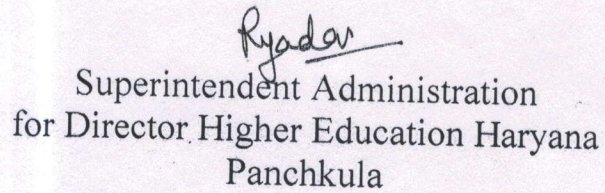 Ryadav
Superintendent Administration
for Director Higher Education Haryana
Panchkula